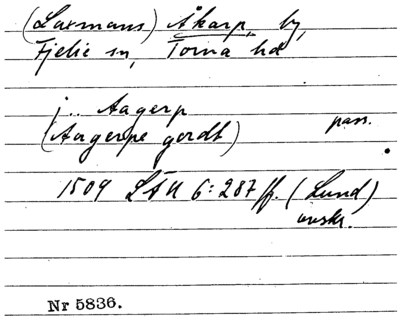 (Laxmans) Åkarp, by,
Fjelie sn, Torna hd
j.. Aagerp
(Aagerpe gerdt) pass.
1509 LÄU 6:287 ff. (Lund)
avskr.
Nr 5836.